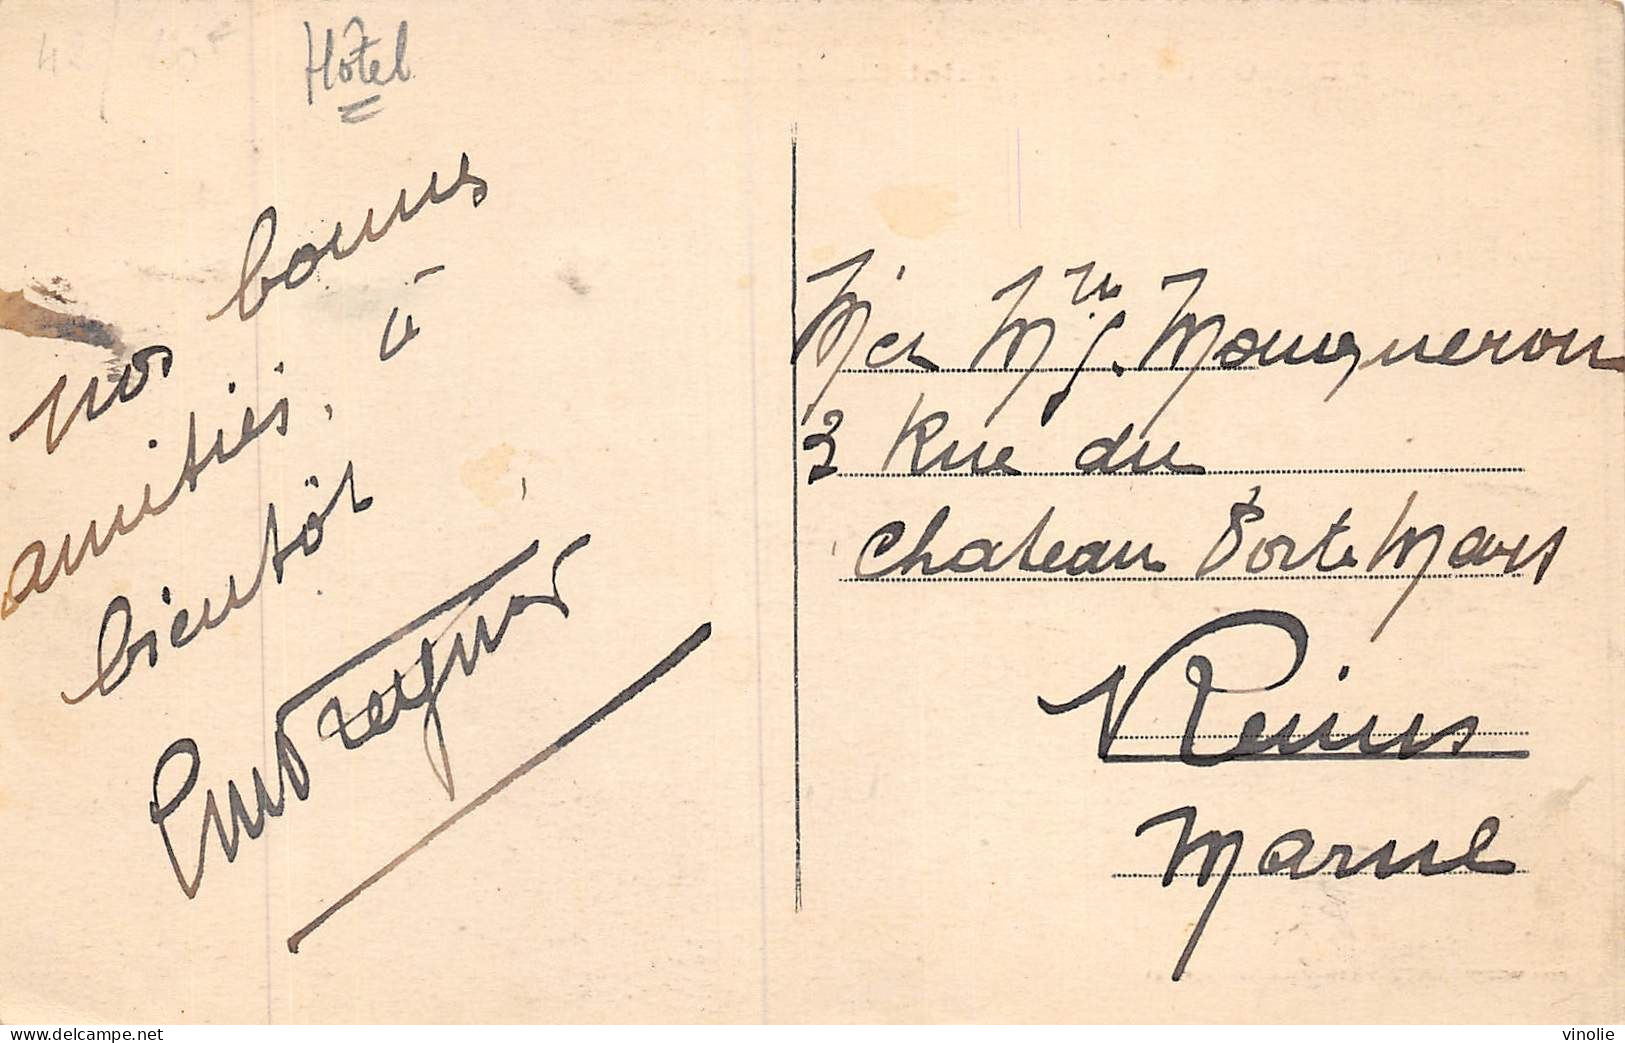 Hôtel
nos bonnes
amitiés, à
bientôt
Mr et Mme G. Mougneron
3 Rue du
Chateau Porte Mars
Reims
Marne
delcampe.net
vinolie